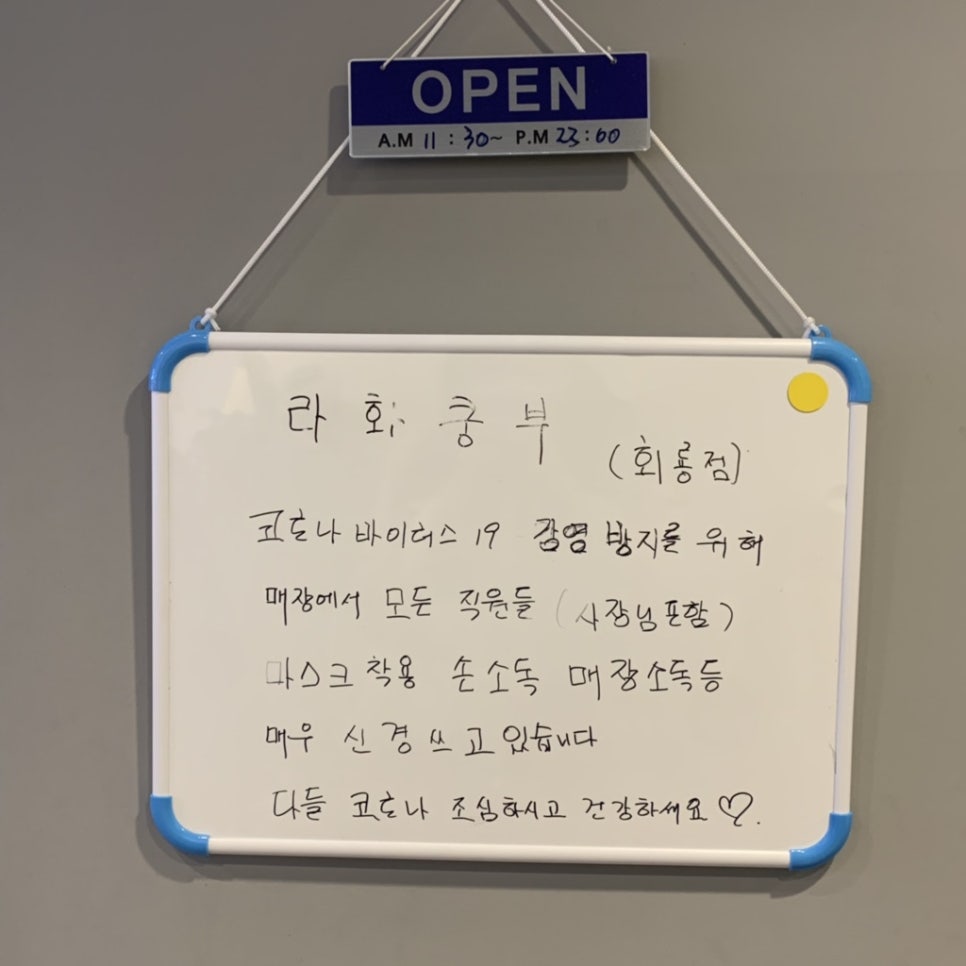 OPEN
A.M 11:30~ P.M 23:00
라화쿵부
(회룡점)
코로나 바이러스 19 감염 방지를 위해
매장에서 모든 직원들 (사장님포함)
마스크 착용 손소독 매장소독등
매우 신경쓰고 있습니다
다들 코로나 조심하시고 건강하세요♡.